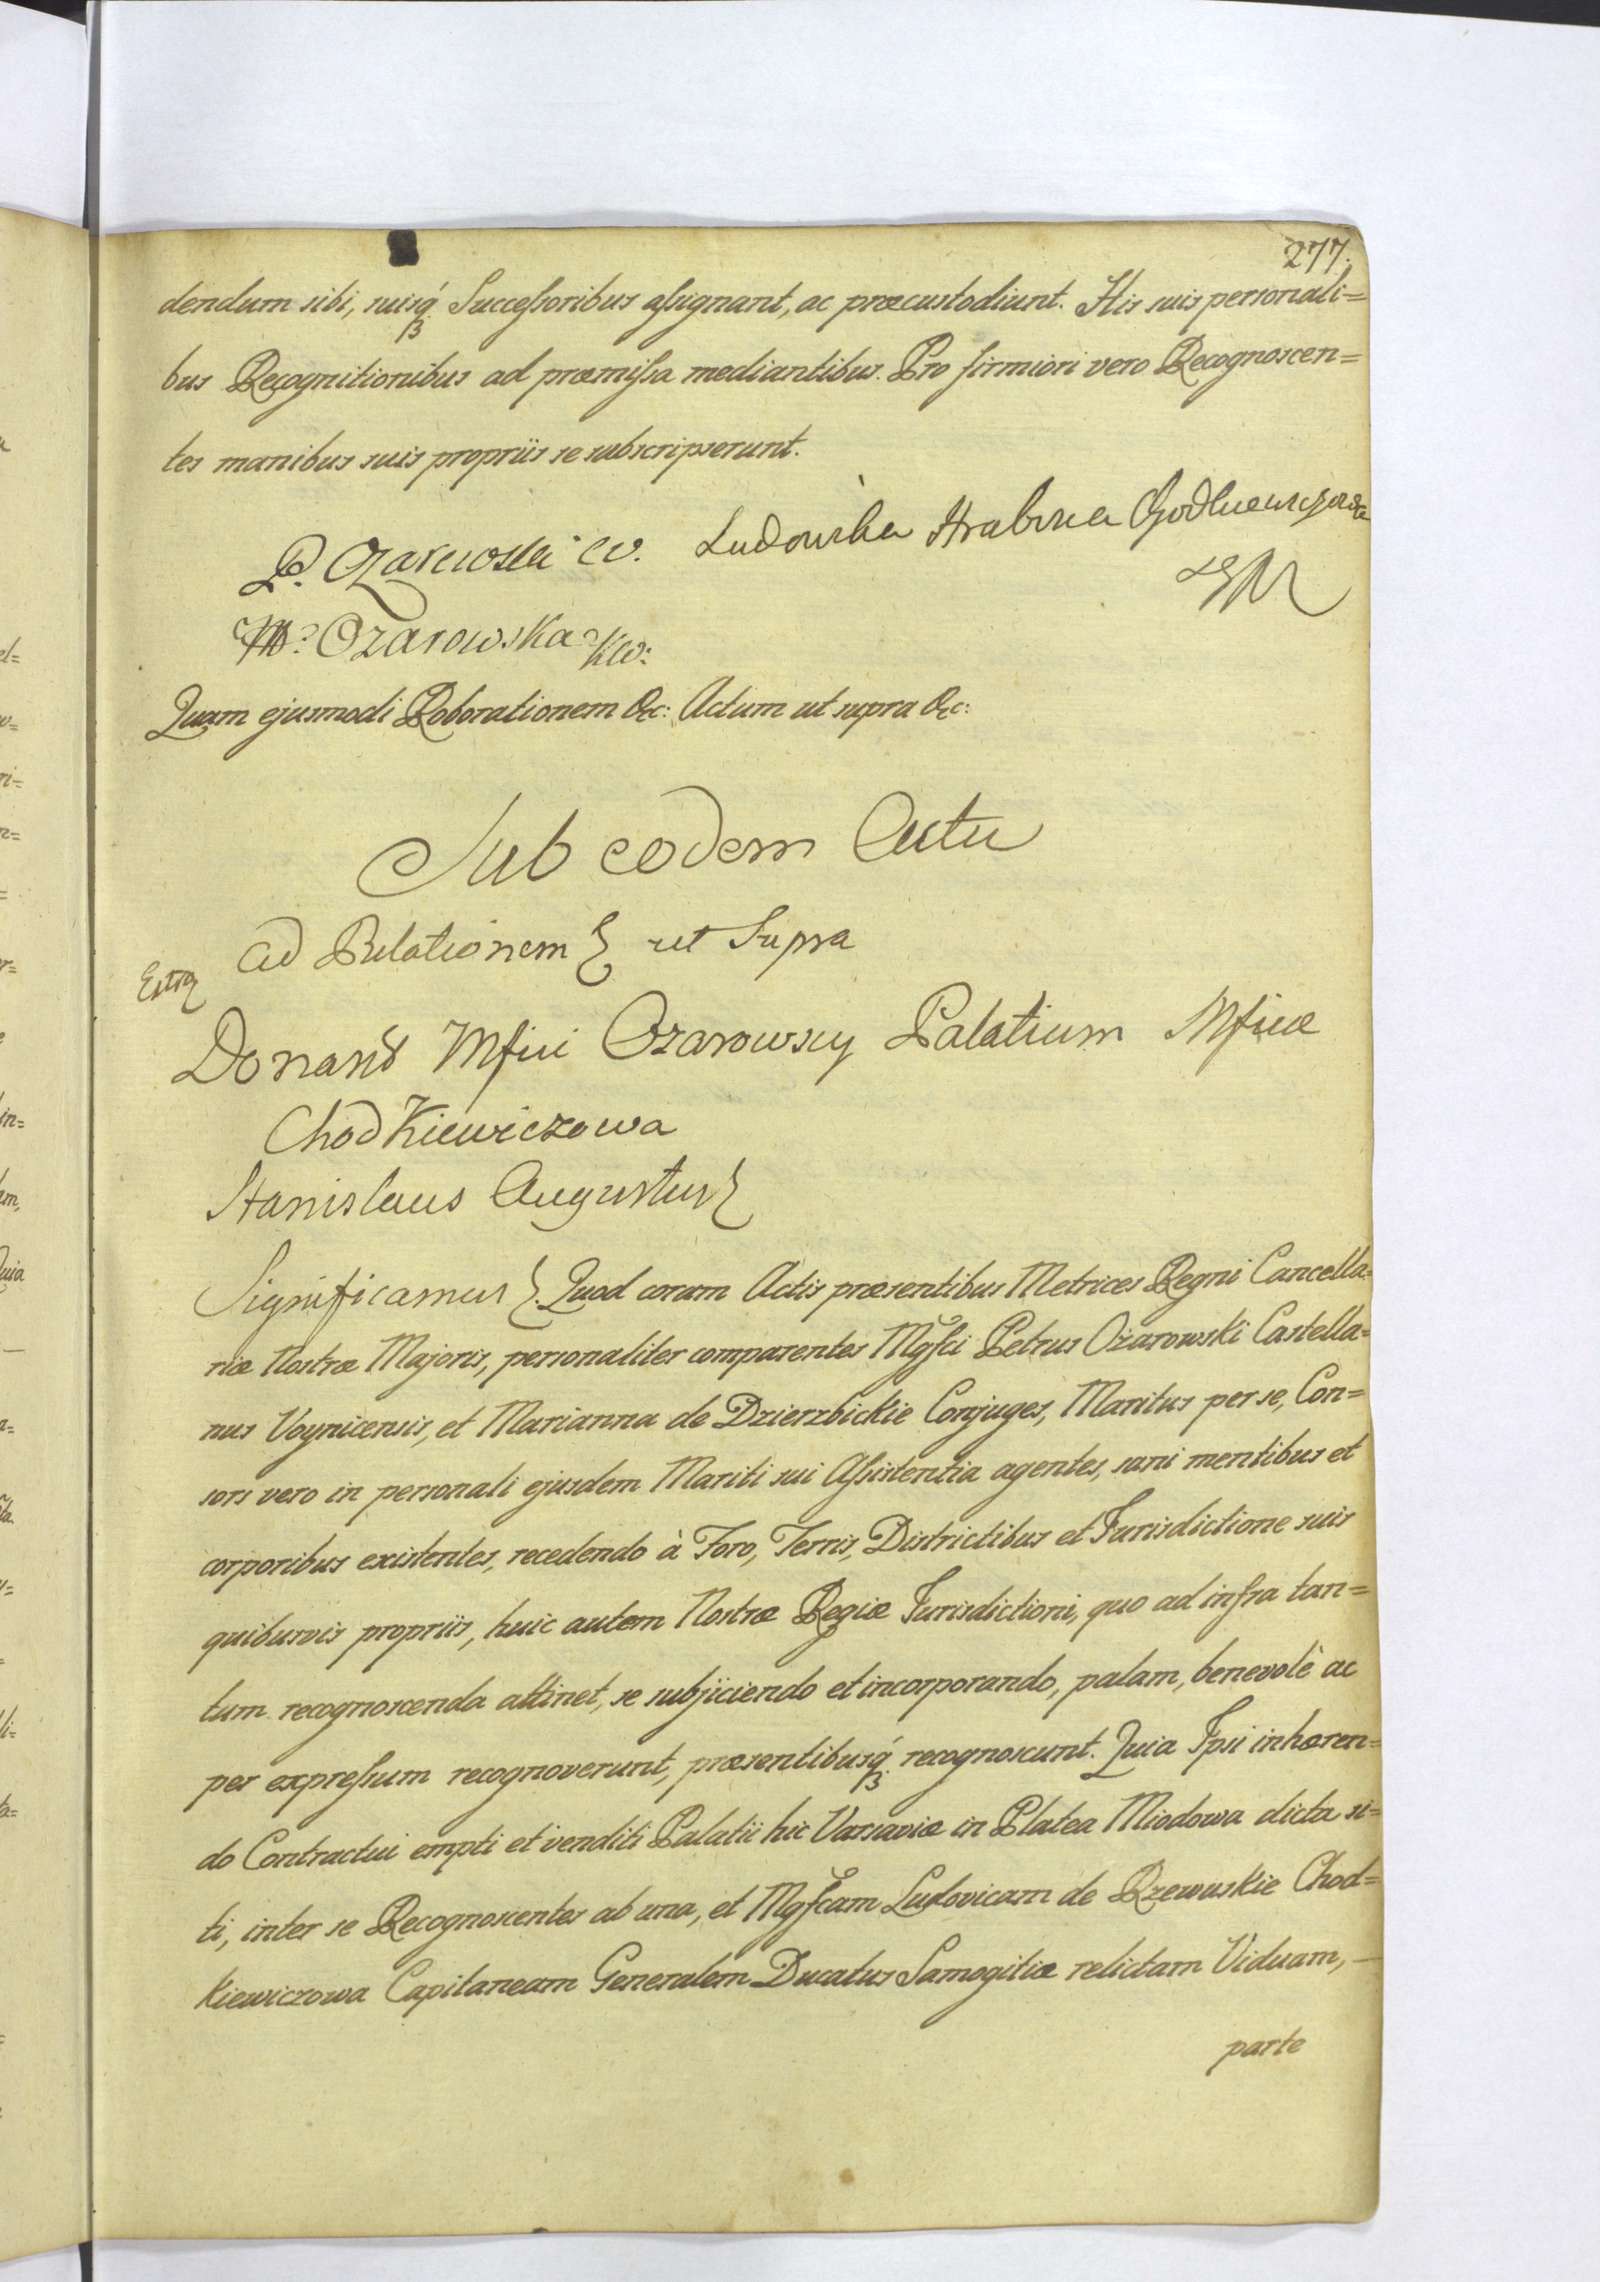 277.
dendum sibi, suisq́ꝫ Succeſsoribus aſsignant, ac præcustodiunt. His suis personali=
bus Recognitionibus ad præmiſsa mediantibus. Pro firmiori vero Recognoscen=
tes manibus suis propriis se subscripserunt.
P. Ożarowski Ludowika Hrabina
M: Ozarowska KW:
Quam ejusmodi Roborationem &c: Actum ut supra &c:
Sub eodem Actu
ad Relationem ut Supra
Extra
Donant Mfici Ozarowscy Palatium Mficæ
Chodkiewiczowa
Stanislaus Augustus
Significamus. Quod coram Actis præsentibus Metrices Regni Cancella=
riæ Nostræ Majoris, personaliter comparentes Mgfci Petrus Ożarowski Castella=
nus Voynicensis, et Marianna de Dzierzbickie Conjuges, Maritus per se, Con=
sors vero in personali ejusdem Mariti sui Aſsistentia agentes, sani mentibus et
corporibus existentes, recedendo à Foro, Terris, Districtibus et Jurisdictione suis
quibusvis propriis, huic autem Nostræ Regiæ Jurisdictioni, quo ad infra tan=
tum recognoscenda attinet, se subjiciendo et incorporando, palam, benevolè ac
per expreſsum recognoverunt, præsentibusq́ꝫ recognoscunt. Quia Ipsi inhæren=
do Contractui empti et venditi Palatii hic Varsaviæ in Platea Miodowa dicta si=
ti, inter se Recognoscentes ab una, et Mgfcam Ludovicam de Rzewuskie Chod=
kiewiczowa Capitaneam Generalem Ducatus Samogitiæ relictam Viduam, —
parte